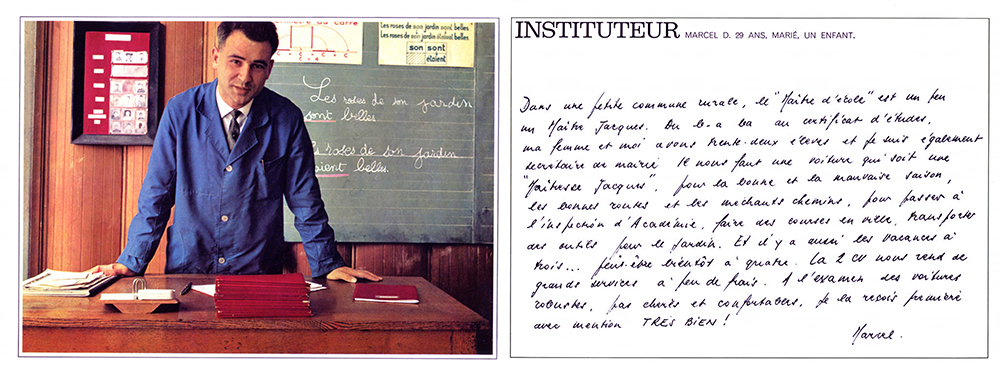 Périmètre du carré
Les roses de son jardin sont belles.
Les roses de son jardin étaient belles.
son sont
étaient
Les roses de son jardin
sont belles
Les roses de son jardin
étaient belles.
INSTITUTEUR MARCEL D. 29 ANS, MARIÉ, UN ENFANT.
Dans une petite commune rurale, le "Maître d'école" est un peu
un Maître Jacques. Du b-a ba au certificat d'études,
ma femme et moi avons trente-deux élèves et je suis également
secrétaire de mairie. Il nous faut une voiture qui soit une
"Maîtresse Jacques", pour la bonne et la mauvaise saison,
les bonnes routes et les méchants chemins, pour passer à
l'inspection d'Académie, faire des courses en ville, transporter
des outils pour le jardin. Et il y a aussi les vacances à
trois... peut-être bientôt à quatre. La 2 CV nous rend de
grands services à peu de frais. A l'examen des voitures
robustes, pas chères et confortables, je la reçois première
avec mention TRES BIEN !
Marcel.